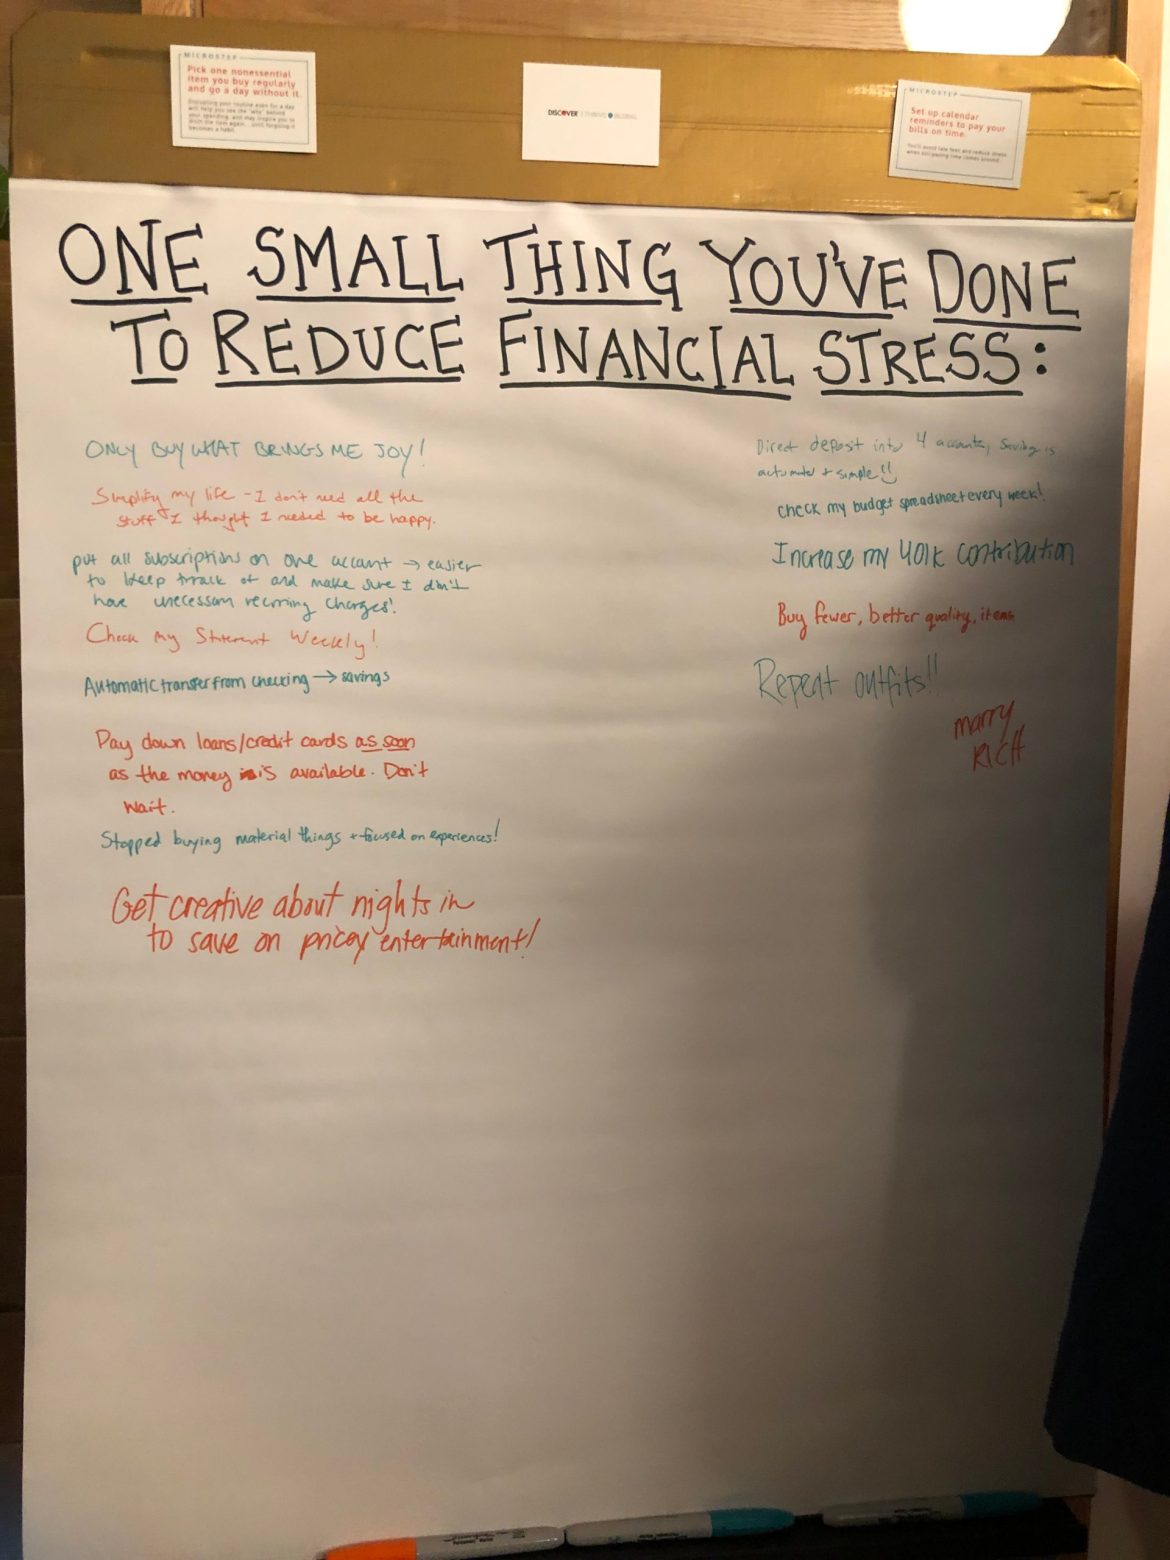 MICROSTEP
Pick one nonessential
item you buy regularly
and go a day without it.
Disrupting your routine even for a day
will help you see the "why" behind
your spending, and may inspire you to
ditch the item again... until forgoing it
becomes a habit.
DISCOVER THRIVE GLOBAL
MICROSTEP
Set up calendar
reminders to pay your
bills on time.
You'll avoid late fees and reduce stress
when bill-paying time comes around.
ONE SMALL THING YOU'VE DONE
TO REDUCE FINANCIAL STRESS:
ONLY BUY WHAT BRINGS ME JOY!
Simplify my life - I don't need all the
stuff I thought I needed to be happy.
put all subscriptions on one account → easier
to keep track of and make sure I don't
have unecessary recurring charges!
Check my Statement Weekly!
Automatic transfer from checking → savings
Pay down loans/credit cards as soon
as the money is available. Don't
wait.
Stopped buying material things + focused on experiences!
Get creative about nights in
to save on pricey entertainment!
Direct deposit into 4 accounts, saving is
automated + simple!!
check my budget spreadsheet every week!
Increase my 401k contribution
Buy fewer, better quality, items
Repeat outfits!!
marry
RICH